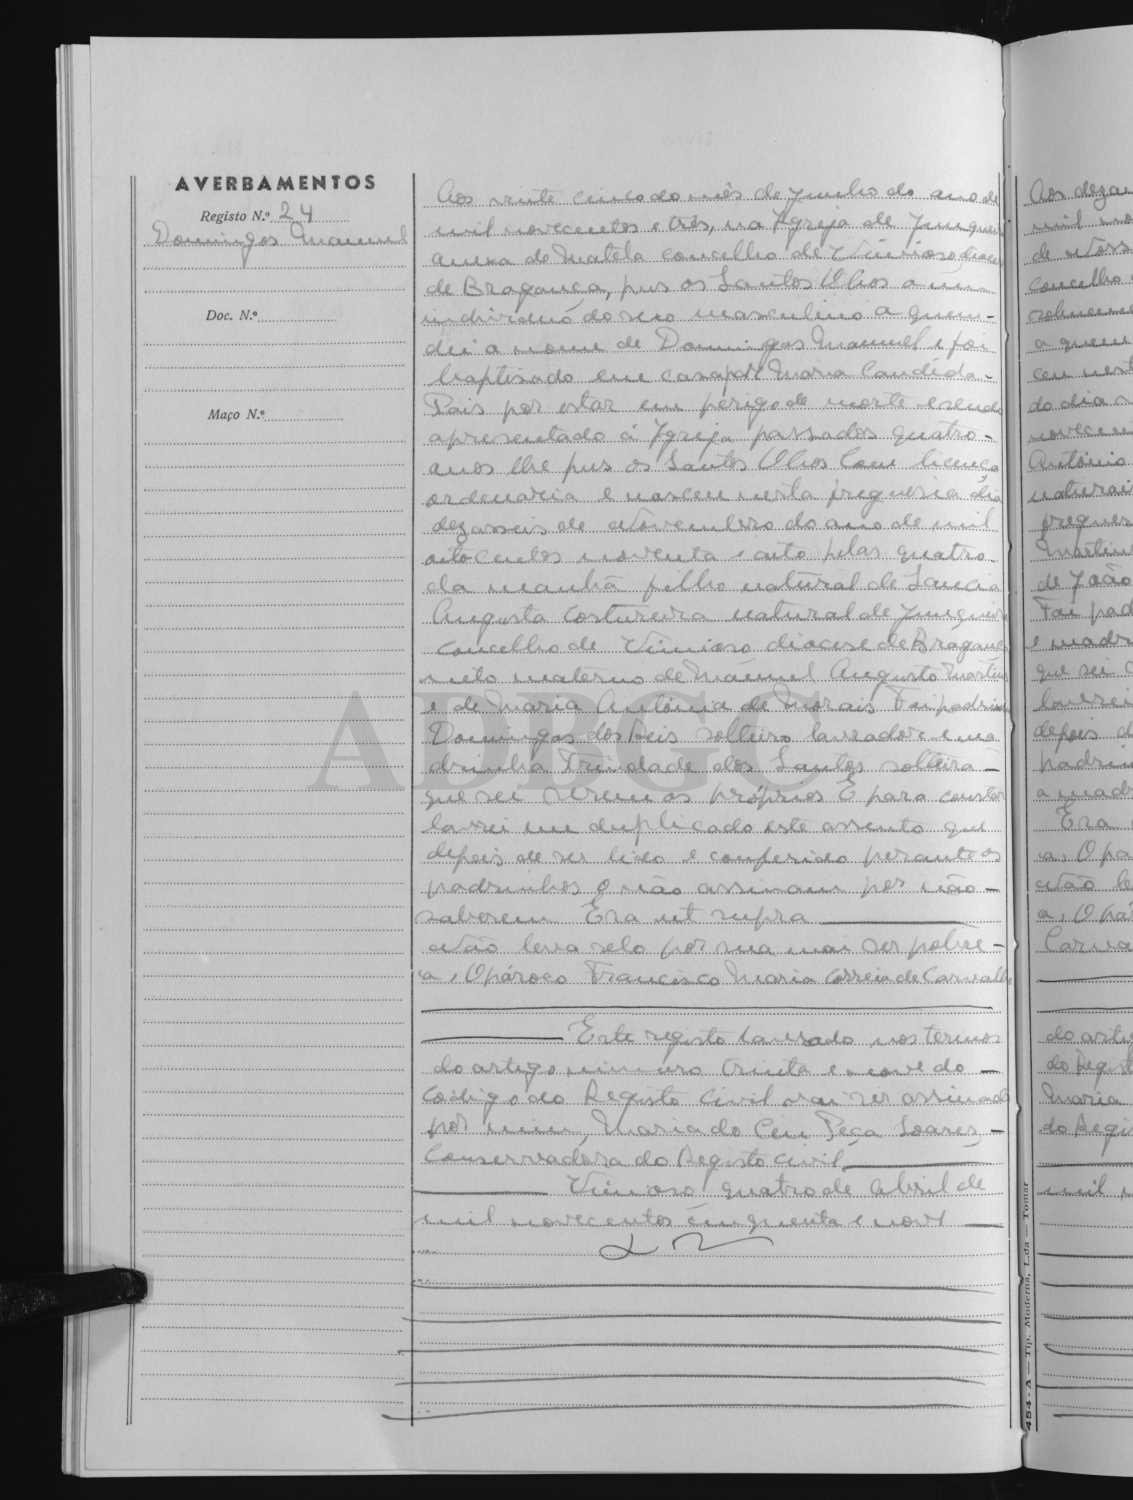 AVERBAMENTOS
Registo N.º 24
Domingos Manuel
Doc. N.º
Maço N.º
Aos vinte cinco do mês de Junho do ano de
mil novecentos e três, na Igreja de Junqueira
anexa de Matela concelho de Vimioso, diocese
de Bragança, pus os Santos Olhos a um
individuo do sexo masculino a quem -
dei o nome de Domingos Manuel e foi
baptisado em casa por Maria Candida -
Pais por estar em perigo de morte e sendo
apresentado á Igreja passados quatro -
anos lhe pus os Santos Olhos com licença
ordenaria e nasceu nesta freguesia dia
dezasseis de Novembro do ano de mil
oitocentos noventa e oito pelas quatro
da manhã filho natural de
Augusta costureira natural de Junqueira
concelho de Vimioso diocese de Bragança
neto materno de Manuel Augusto Martins
e de Maria Antónia de Morais Foi padrinho
Domingos dos Reis solteiro lavrador e ma
drinha Trindade dos Santos solteira -
que sei serem os próprios E para constar
lavrei em duplicado este assento que
depois de ser lido e conferido perante os
padrinhos q não assinam por não -
saberem Era ut supra
Não leva selo por sua mai ser pobre -
a, O pároco Francisco Maria Correia de Carvalho
Este registo lavrado nos termos
do artigo numero trinta e nove do -
Código do Registo Civil vai ser assinado
por mim, Maria do Ceu Peça Soares, -
Conservadora do Registo Civil
Vimioso quatro de Abril de
mil novecentos cinquenta e nove
ADBGC
Aos dezan
mil no
de
concelho
a quem
ceu nest
do dia
novecen
António
naturai
fregues
Martin
de João
Foi pad
e madr
que sei
lavrei
depois d
padrin
a madr
Era
a, O pa
Não le
a, O pá
Carva
do artig
do Regist
Maria
do Regis
mil
454-A — Tip. Moderna, Lda — Tomar